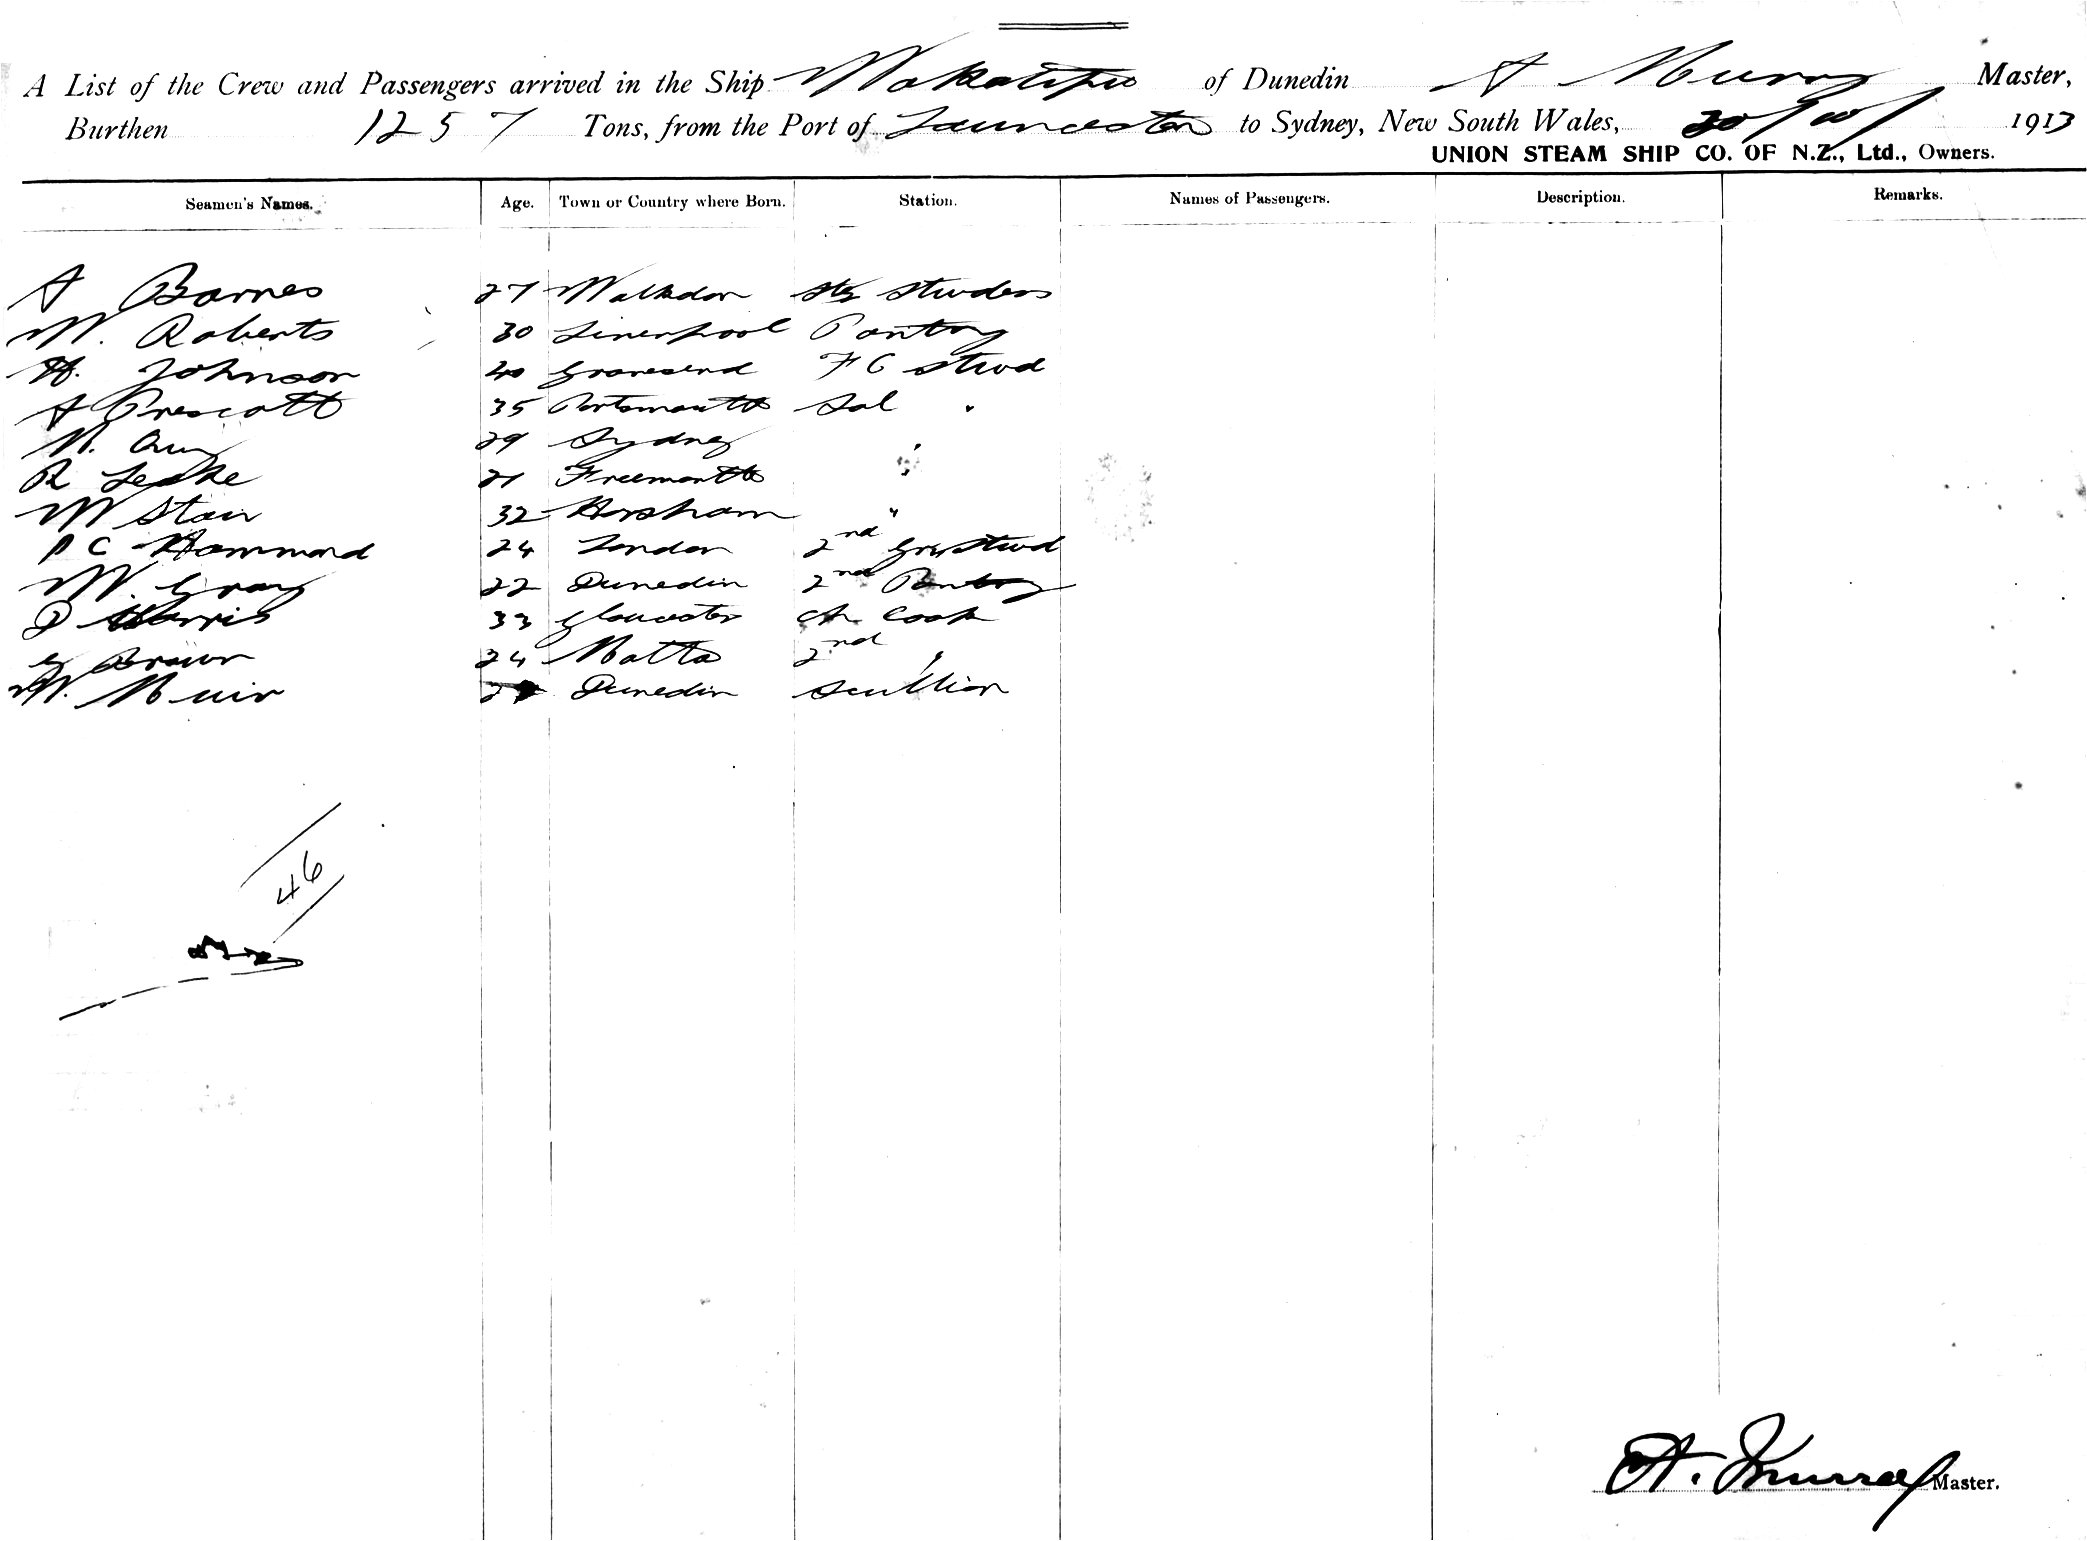 A List of the Crew and Passengers arrived in the Ship Wakatipu of Dunedin A Murray Master,
Burthen 1257 Tons, from the Port of Launceston to Sydney, New South Wales, 30/10/ 1913
UNION STEAM SHIP CO. OF N.Z., Ltd., Owners.
Seamen's Names. Age. Town or Country where Born. Station. Names of Passengers. Description. Remarks.
A Barnes 27 Stg Stwdess
W. Roberts 30 Liverpool Pantry
H. Johnson 40 Gravesend F C Stwd
A Prescott 35 Portsmouth Sal "
W. 29 Sydney "
R Leske 21 Freemantle "
W Stair 32 Horsham "
P C Hammond 24 London 2nd Stwd
W. Gray 22 Dunedin 2nd Pantry
D Harris 33 Gloucester Ch Cook
G Brown 24 Malta 2nd "
W. Muir Dunedin Scullion
46
A. Murray Master.